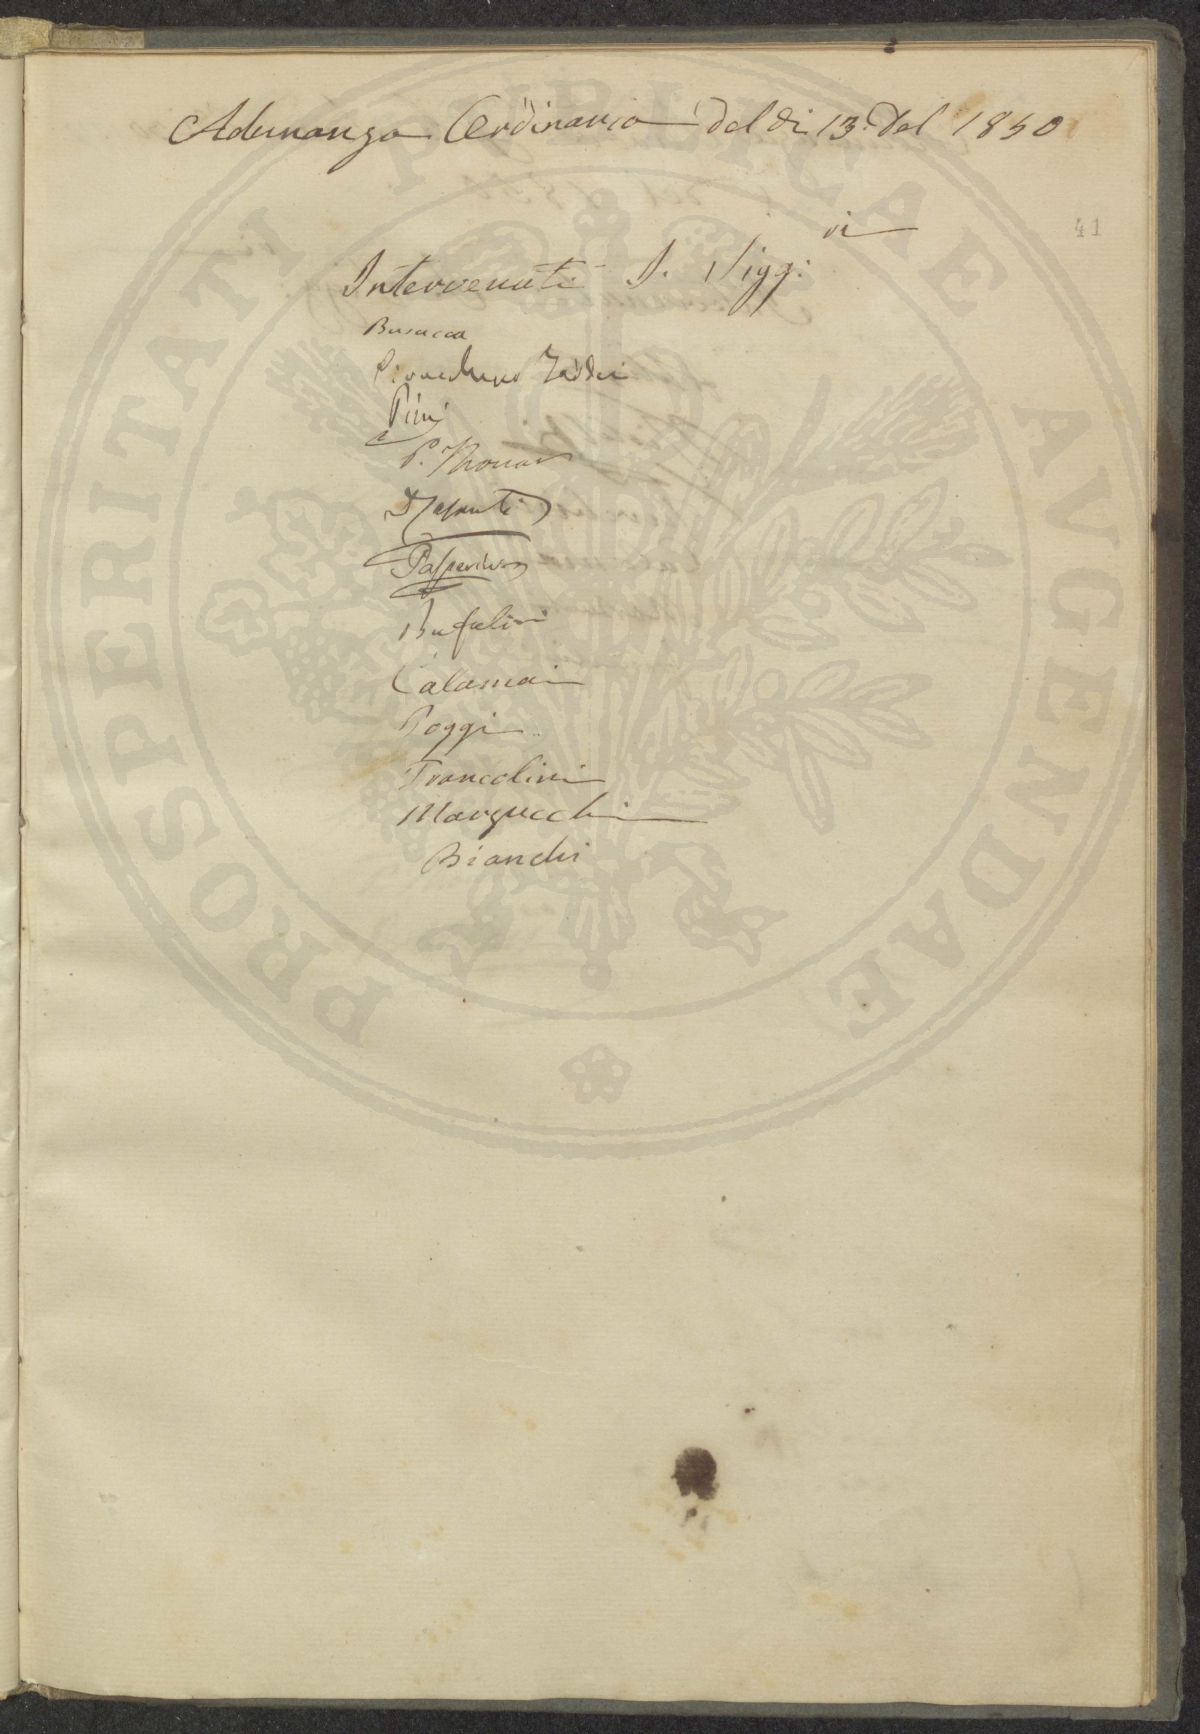 Adunanza Ordinaria del dì 13. del 1850
41
Intervenuti I. Sigg:ri
Busacca
Taddei
Pini
P. Thouar
Passerini
Bufalini
Calamai
Poggi
Francolini
Marzucchi
Bianchi
PROSPERITATI PUBLICAE AUGENDAE